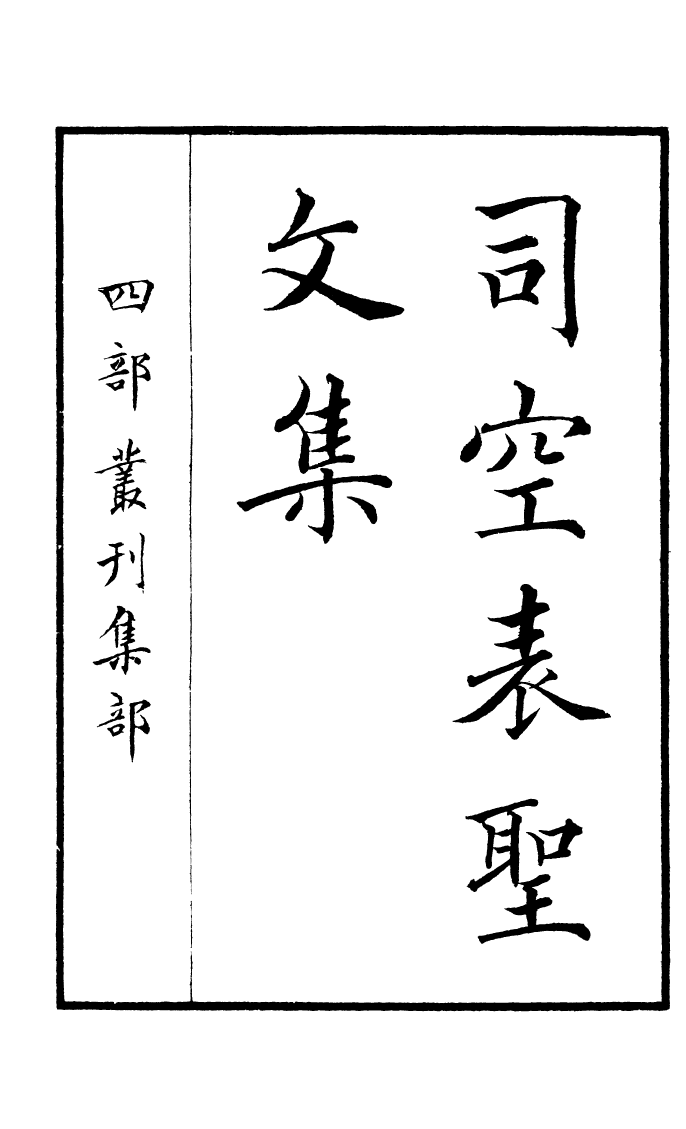 司空表聖
文集
四部叢刊集部